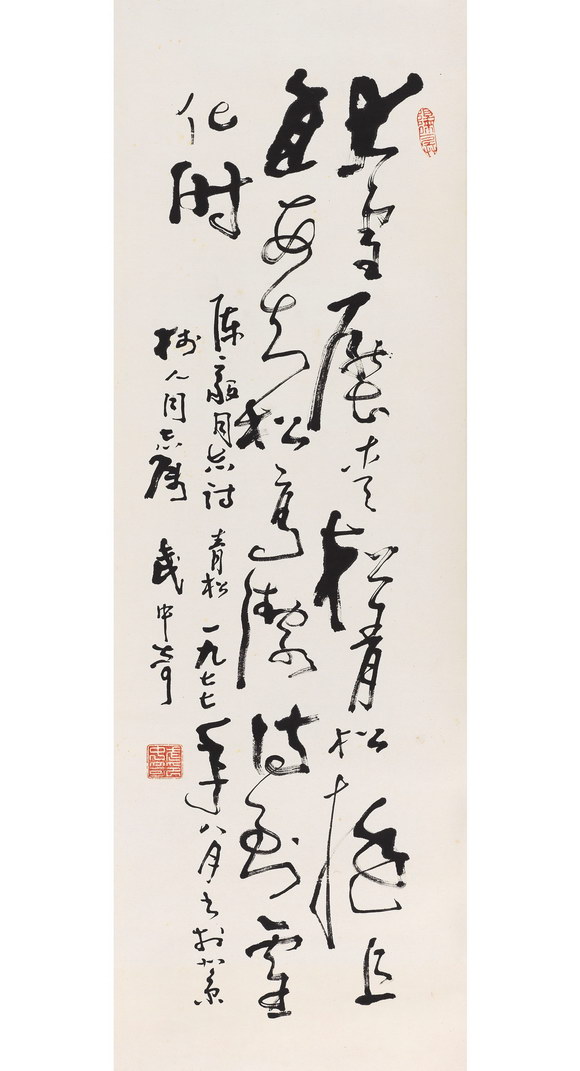 大雪压青松青松挺且
直要知松高洁待到雪
化时
陈毅同志诗青松一九七七年八月书于北京
树人同志属 武中奇